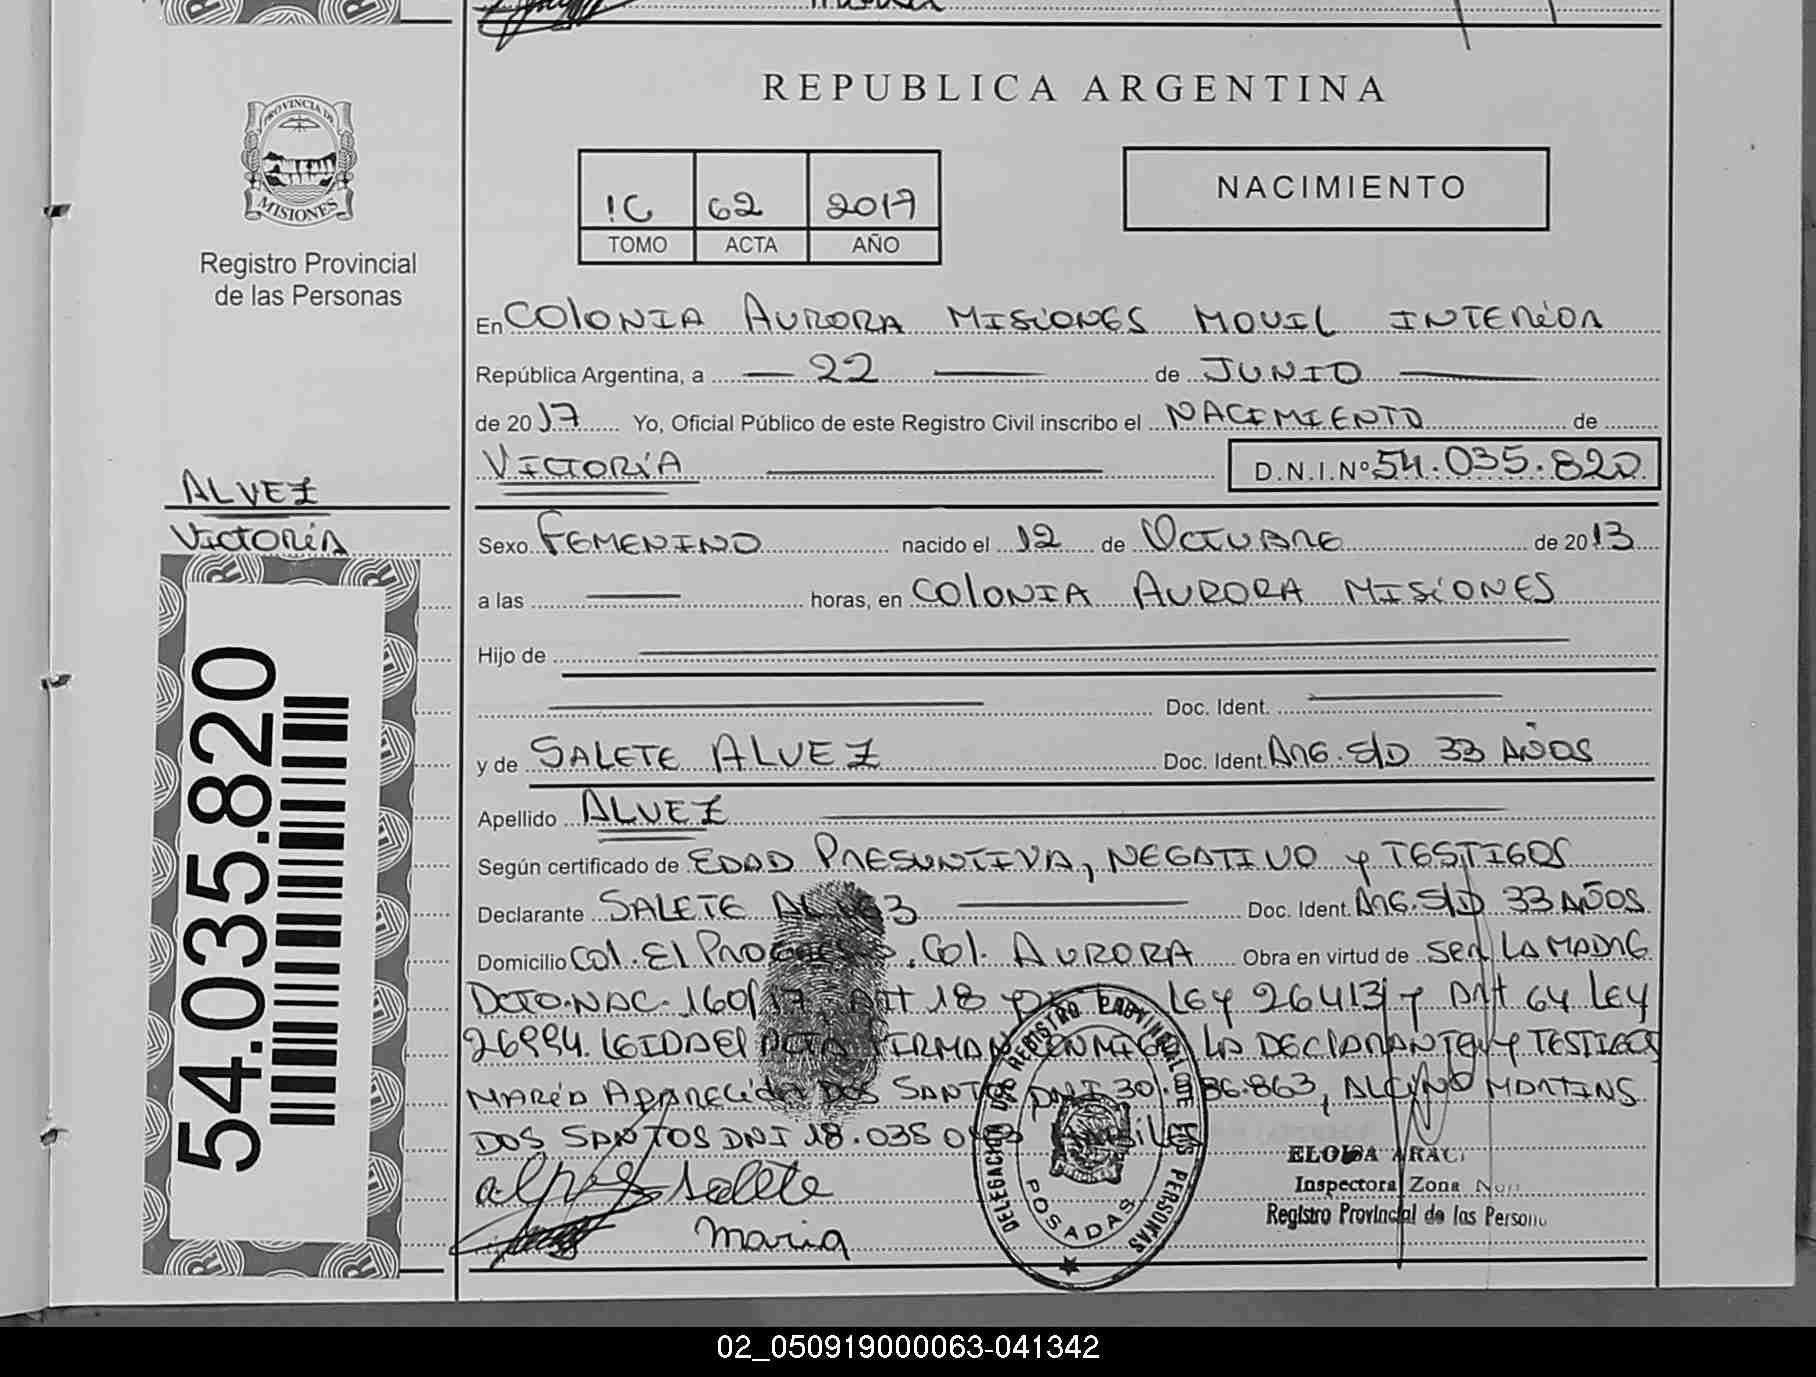 REPUBLICA ARGENTINA
PROVINCIA DE
MISIONES
Registro Provincial
de las Personas
1C 62 2017
TOMO ACTA AÑO
NACIMIENTO
En COLONIA AURORA MISIONES MOVIL INTERIOR
República Argentina, a 22 de JUNIO
de 2017 Yo, Oficial Público de este Registro Civil inscribo el NACIMIENTO de
VICTORIA D.N.I. Nº 54.035.820
ALVEZ
VICTORIA
54.035.820
Sexo FEMENINO nacido el 12 de OCTUBRE de 2013
a las horas, en COLONIA AURORA MISIONES
Hijo de
Doc. Ident.
y de SALETE ALVEZ Doc. Ident. ARG. S/D 33 AÑOS
Apellido ALVEZ
Según certificado de EDAD PRESUNTIVA, NEGATIVO y TESTIGOS
Declarante SALETE ALVEZ Doc. Ident. ARG. S/D 33 AÑOS
Domicilio COL. EL PROGRESO, COL. AURORA Obra en virtud de SER LA MADRE
DCTO. NAC. 160/17, ART 18 LEY 26413 y ART 64 LEY
26994. LEIDA EL ACTA FIRMAN CONMIGO LA DECLARANTE y TESTIGOS
MARIA APARECIDA DOS SANTOS DNI 30. 86.863, ALCINO MARTINS
DOS SANTOS DNI 18.035
alves salete
maria
DELEGACION DEL REGISTRO PROVINCIAL DE LAS PERSONAS
POSADAS
ELOISA ARAC
Inspectora Zona
Registro Provincial de las Person
02_050919000063-041342